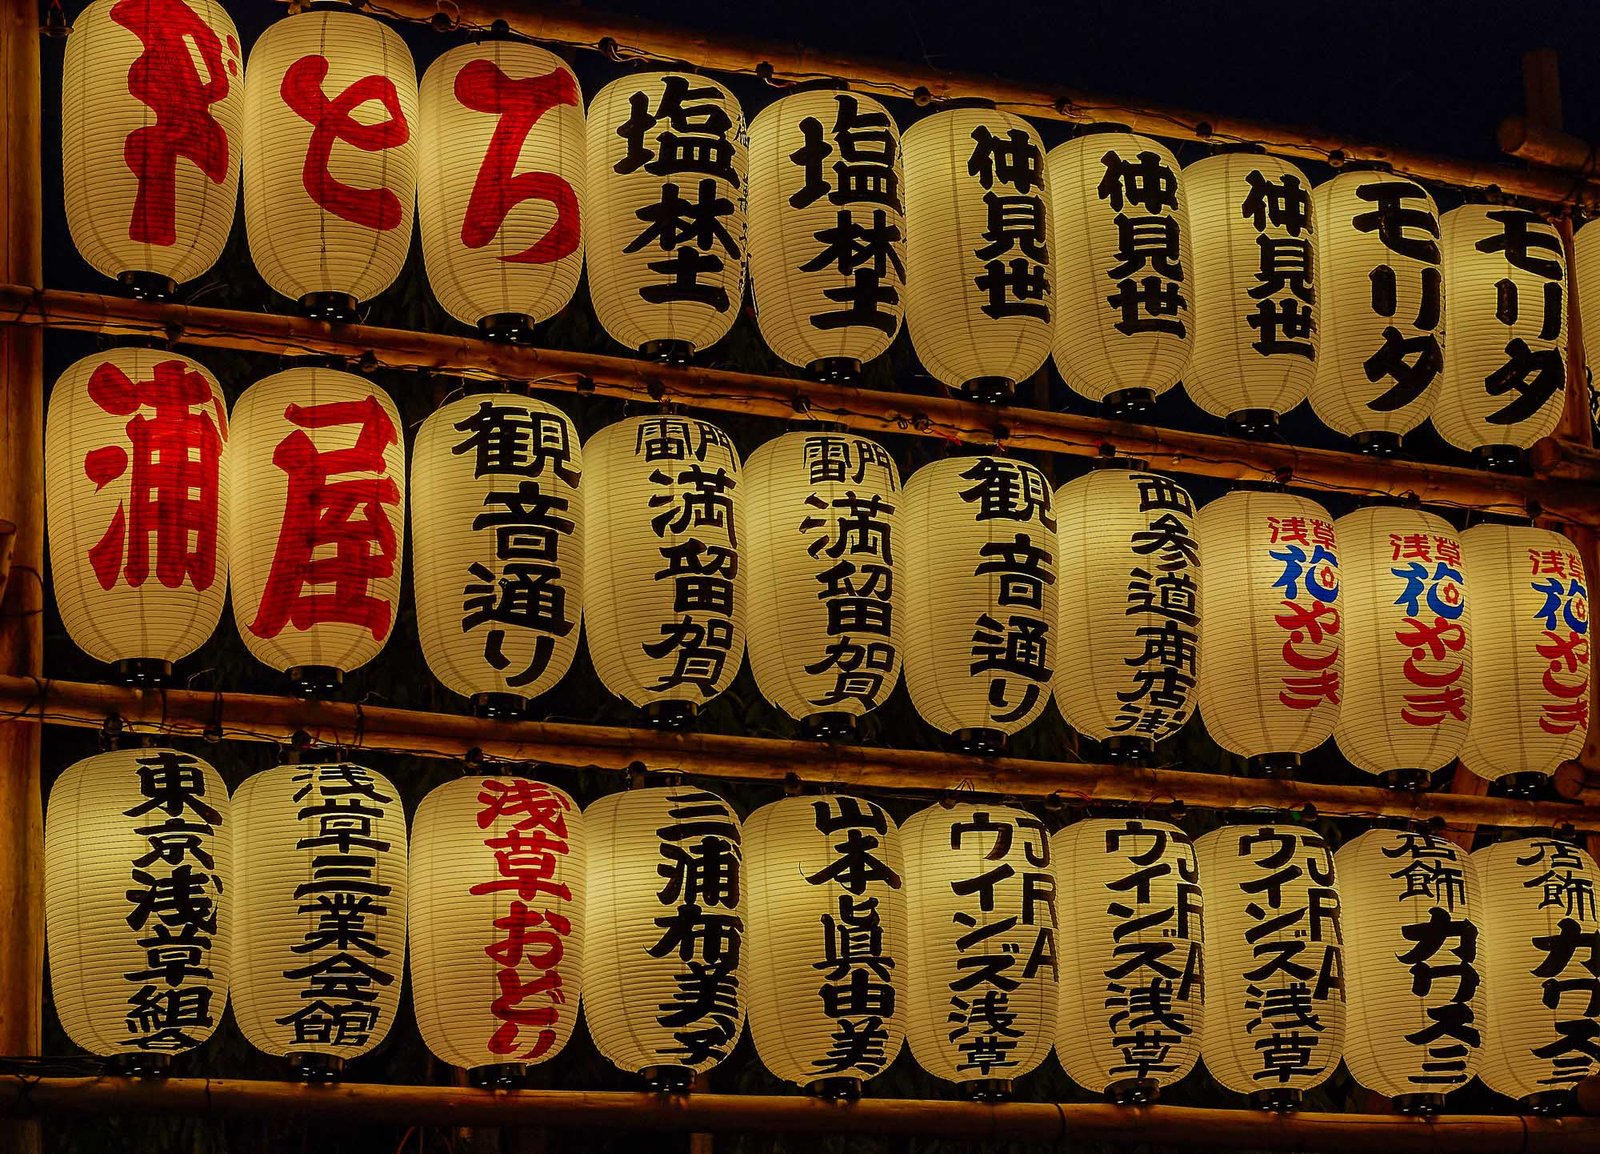 が
と
ろ
塩埜
塩埜
仲見世
仲見世
仲見世
モリタ
モリタ
浦
屋
観音通り
雷門
満留賀
雷門
満留賀
観音通り
西参道商店街
浅草
花やしき
浅草
花やしき
浅草
花やしき
東京浅草組合
浅草三業会館
浅草おどり
三浦布美子
山本眞由美
JRA
ウインズ浅草
JRA
ウインズ浅草
JRA
ウインズ浅草
店飾
カワスミ
店飾
カワスミ